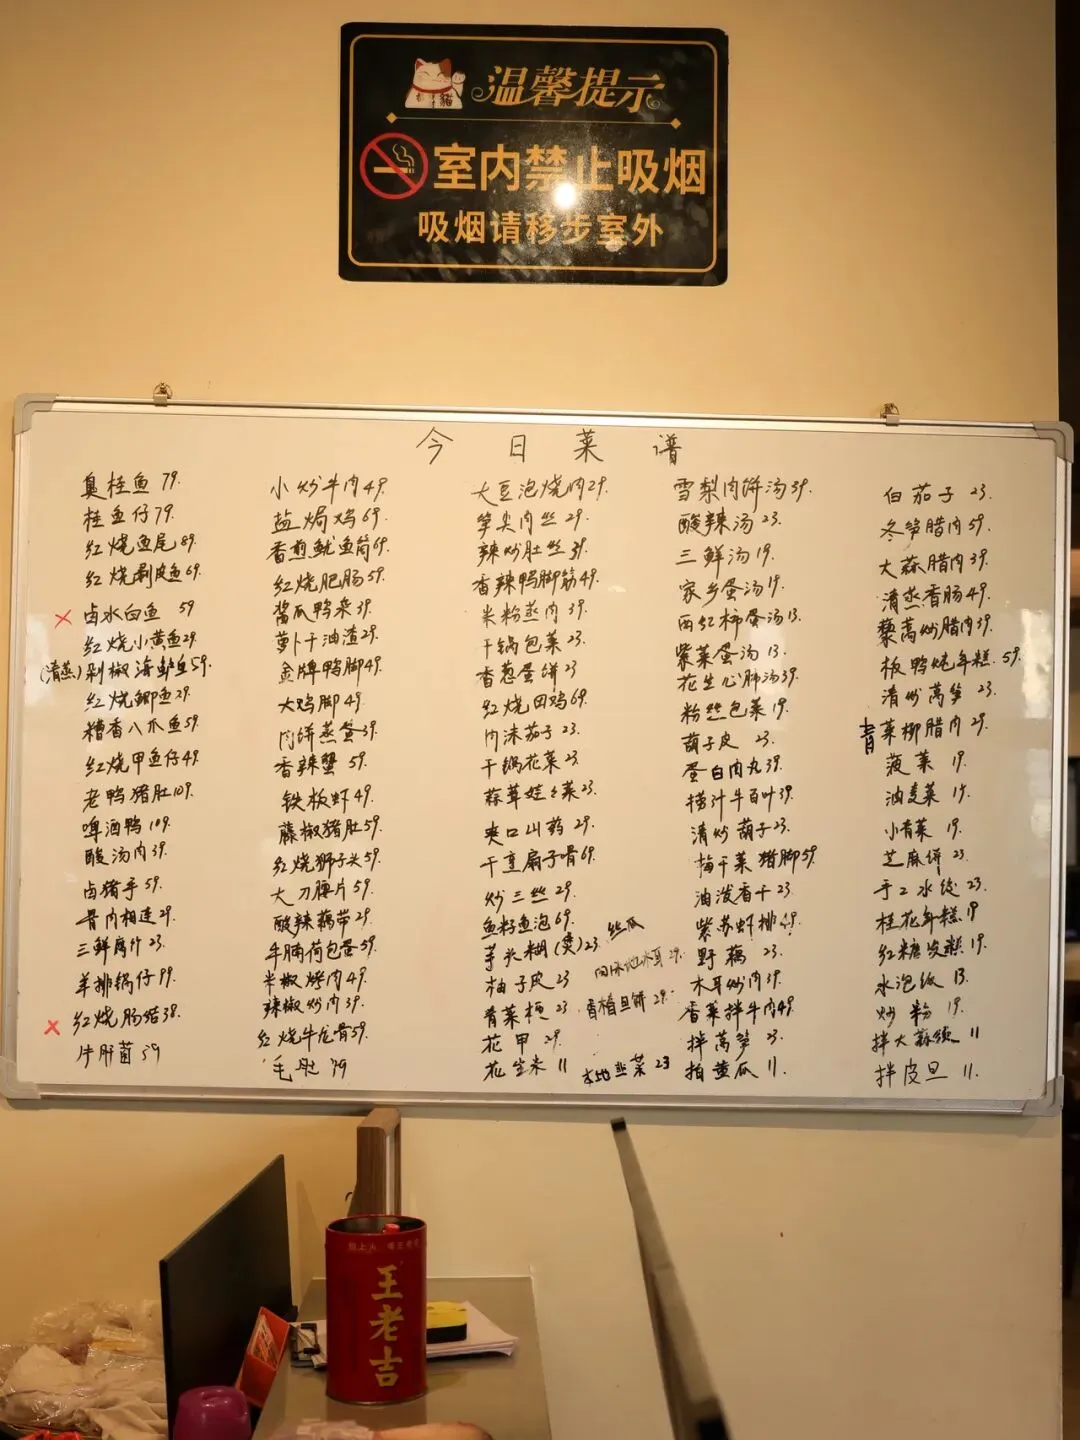 温馨提示
室内禁止吸烟
吸烟请移步室外
今日菜谱
臭桂鱼 79.
桂鱼仔 79.
红烧鱼尾 89.
红烧剥皮鱼 69.
卤水白鱼 59
红烧小黄鱼 29.
(清蒸)剁椒海鲈鱼 59.
红烧鲫鱼 29.
糟香八爪鱼 59.
红烧甲鱼仔 49.
老鸭猪肚 109.
啤酒鸭 109.
酸汤肉 39.
卤猪手 59.
骨肉相连 29.
三鲜腐竹 23.
羊排锅仔 99.
红烧肠结 38.
牛肝菌 59
小炒牛肉 49.
盐焗鸡 69.
香煎鱿鱼筒 69.
红烧肥肠 59.
酱瓜鸭条 39.
萝卜干油渣 29.
金牌鸭脚 49.
大鸡脚 49.
肉饼蒸蛋 39.
香辣蟹 59.
铁板虾 49.
藤椒猪肚 59.
红烧狮子头 59.
大刀腰片 59.
酸辣藕带 29.
牛腩荷包蛋 59.
米椒烤肉 49.
辣椒炒肉 39.
红烧牛龙骨 59.
毛肚 79
大豆泡烧肉 29.
笋尖肉丝 29.
辣炒肚丝 39.
香辣鸭脚筋 49.
米粉蒸肉 39.
干锅包菜 23.
香葱蛋饼 23
红烧田鸡 69.
肉沫茄子 23.
干锅花菜 23.
蒜茸娃娃菜 23.
爽口山药 29.
干烹扇子骨 69.
炒三丝 29.
鱼籽鱼泡 69.
芋头糊(羹) 23
柚子皮 23
青菜梗 23
花甲 29.
花生米 11
丝瓜
29.
29.
本地韭菜 23
雪梨肉饼汤 39.
酸辣汤 23.
三鲜汤 19.
家乡蛋汤 19.
西红柿蛋汤 13.
紫菜蛋汤 13.
花生心肺汤 39.
粉丝包菜 19.
葫子皮 23.
蛋白肉丸 39.
捞汁牛百叶 39.
清炒葫子 23.
梅干菜猪脚 59
油泼香干 23.
紫苏虾排 49.
野藕 23.
木耳炒肉 39.
香菜拌牛肉 49.
拌莴笋 23.
拍黄瓜 11.
白茄子 23.
冬笋腊肉 59.
大蒜腊肉 39.
清蒸香肠 49.
藜蒿炒腊肉 39.
板鸭炖年糕. 59.
清炒莴笋 23.
青菜柳腊肉 29.
菠菜 19.
油麦菜 19.
小青菜 19.
芝麻饼 23.
手工水饺 23.
桂花年糕 19
红糖发糕 19.
水泡饭 13.
炒粉 19.
拌大蒜 11
拌皮旦 11.
王老吉